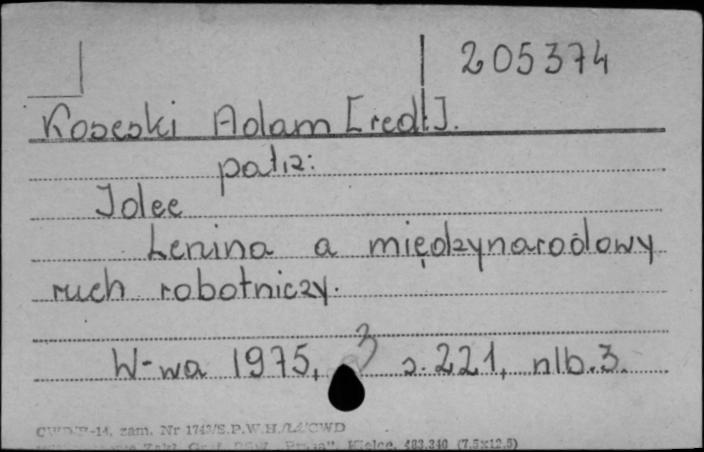 205374
Koseski Adam [red.].
patrz:
Idee
Lenina a międzynarodowy
ruch robotniczy.
W-wa 1975, s. 221, nlb. 3.
zam. Nr S.P.W.H. CWD
Kielce, (7.5x12.5)